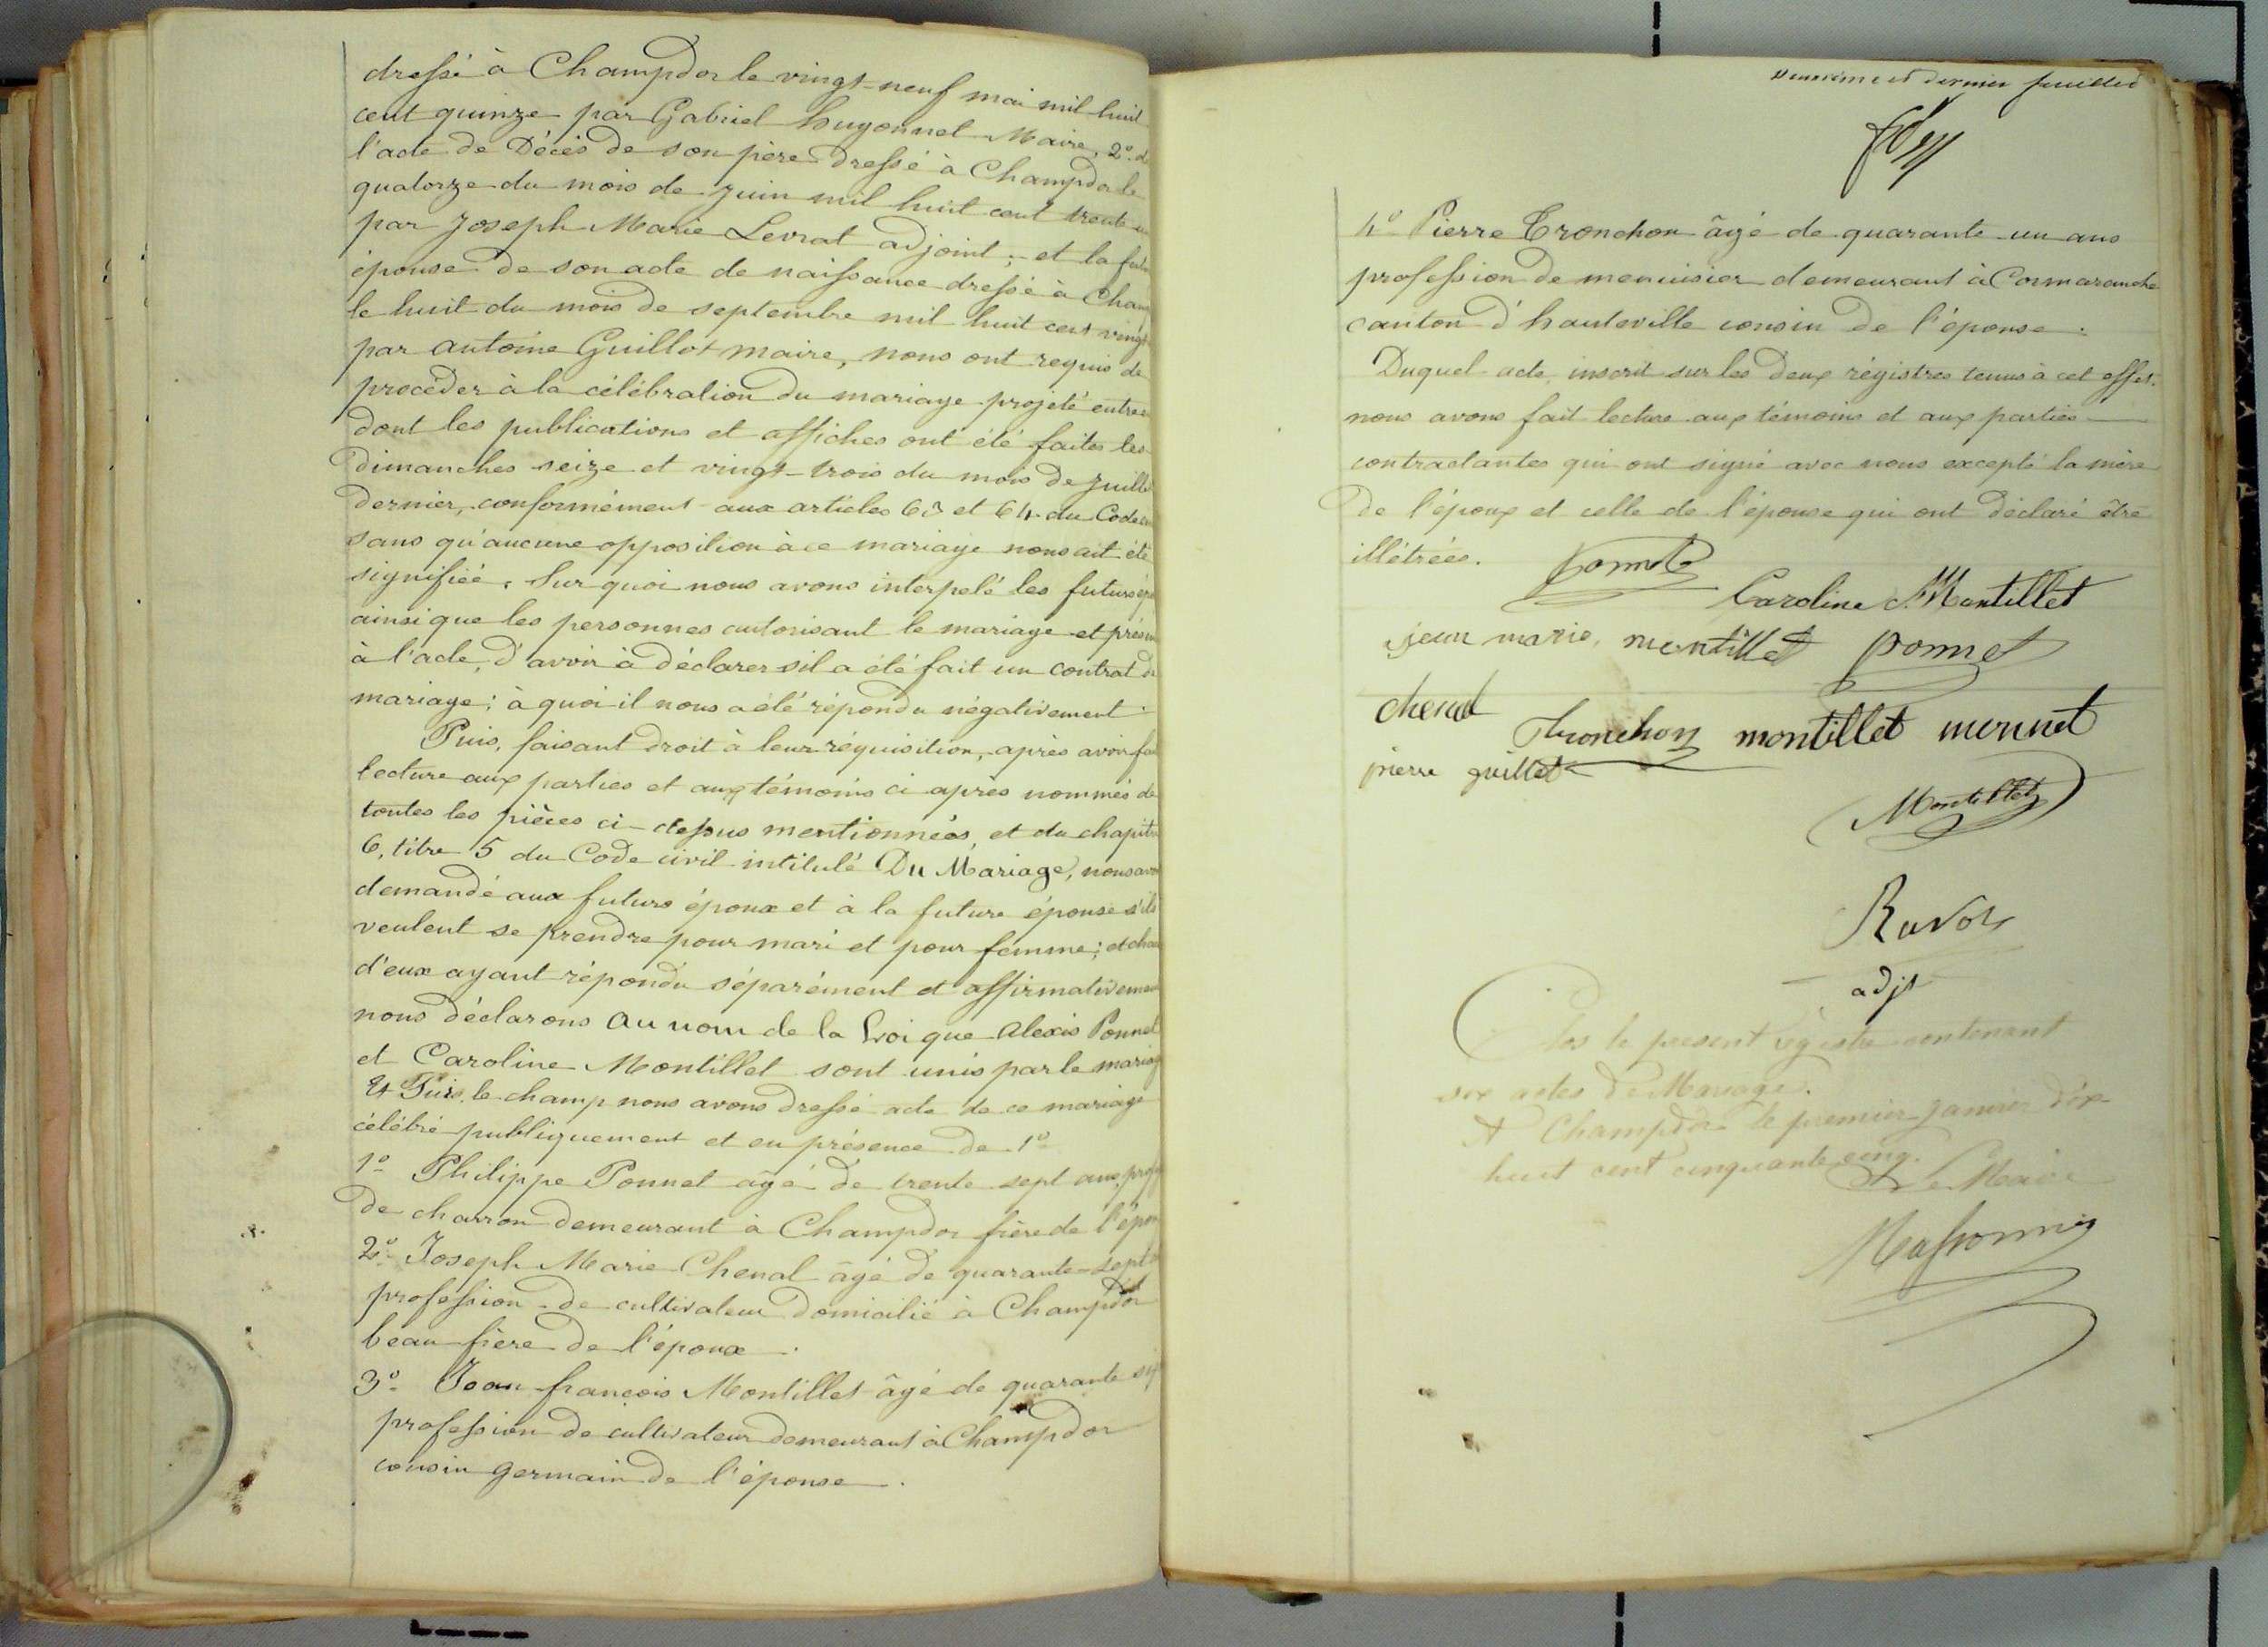 dressé à Champdor le vingt-neuf mai mil huit
cent quinze par Gabriel hugonnet Maire, 2º de
l'acte de Décès de son père dressé à Champdor le
quatorze du mois de Juin mil huit cent trente
par Joseph Marie Levrat adjoint; et la
épouse de son acte de naissance dressé à Cham
le huit du mois de septembre mil huit cent vingt
par antoine Guillot maire, nous ont requis de
procéder à la célébration du mariage projeté entre
dont les publications et affiches ont été faites les
Dimanches seize et vingt-trois du mois de Juillet
dernier, conformément aux articles 63 et 64 du Code
sans qu'aucune opposition à ce mariage nous ait été
signifiée. Sur quoi nous avons interpelé les futurs
ainsi que les personnes autorisant le mariage et
à l'acte, d'avoir à déclarer s'il a été fait un contrat de
mariage; à quoi il nous a été répondu négativement.
Puis, faisant droit à leur réquisition, après avoir fa
lecture aux parties et aux témoins ci après nommés de
toutes les pièces ci-dessus mentionnées, et du chapitre
6, titre 5 du Code civil intitulé Du Mariage, nous avo
demandé aux futurs époux et à la future épouse s'ils
veulent se prendre pour mari et pour femme; et cha
d'eux ayant répondu séparément et affirmativement
nous déclarons au nom de la Loi que Alexis Ponnet
et Caroline Montillet sont unis par le mariage
Et le champ nous avons dressé acte de ce mariage
célébré publiquement et en présence de 1º
1º Philippe Ponnet âgé de trente sept ans, prof
de charron demeurant à Champdor frère de l'épou
2º Joseph Marie Chenal âgé de quarante-sept
profession de cultivateur domicilié à Champdor
beau frère de l'époux.
3º Jean françois Montillet âgé de quarante six
profession de cultivateur demeurant à Champdor
cousin germain de l'épouse.
Deuxième et dernier feuillet
4º Pierre Tronchon âgé de quarante un ans
profession de menuisier demeurant à Cormaranche
canton d'hauteville cousin de l'épouse.
Duquel acte, inscrit sur les deux régistres tenus à cet effet,
nous avons fait lecture aux témoins et aux parties
contractantes qui ont signé avec nous excepté la mère
De l'époux et celle de l'épouse qui ont déclaré être
illétrées. Ponnet
Caroline Montillet
jean marie montillet ponnet
chenal
tronchon montillet monnet
pierre guillot
Montillet
Ravot
adjt
Clos le présent régistre contenant
six actes de Mariage.
A Champdor le premier Janvier dix
huit cent cinquante cinq.
Le Maire